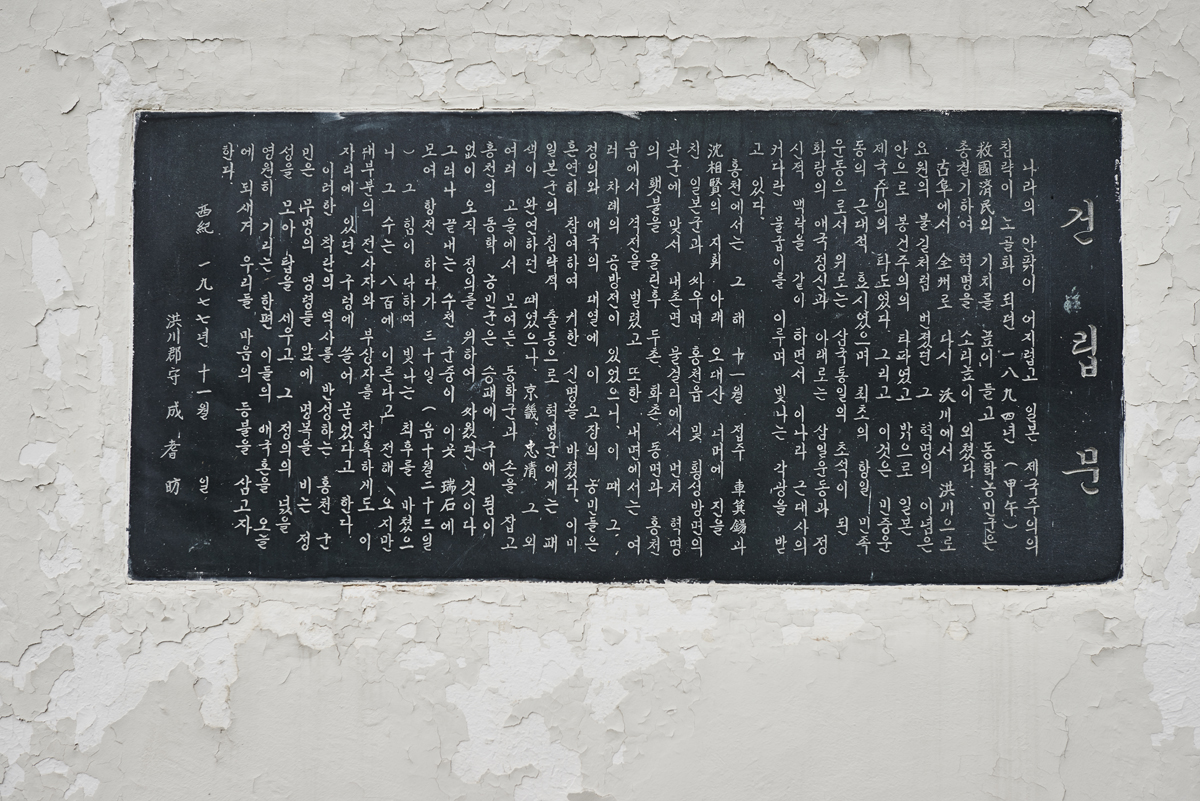 건립문
나라의 안팎이 어지럽고 일본 제국주의의
침략이 노골화 되던 一八九四년 (甲午)
救國濟民의 기치를 높이 들고 동학농민군은
총궐기하여 혁명을 소리높이 외쳤다.
古阜에서 全州로 다시 沃川에서 洪川으로
요원의 불길처럼 번졌던 그 혁명의 이념은
안으로 봉건주의의 타파였고 밖으로 일본
제국주의의 타도였다. 그리고 이것은 민중운
동의 근대적 효시였으며 최초의 항일 민족
운동으로서 위로는 삼국통일의 초석이 된
화랑의 애국정신과 아래로는 삼일운동과 정
신적 맥락을 같이 하면서 이나라 근대사의
커다란 물굽이를 이루며 빛나는 각광을 받
고 있다.
홍천에서는 그 해 十一월 접주 車箕錫과
沈相賢의 지휘 아래 오대산 너머에 진을
친 일본군과 싸우며 홍천읍 및 횡성방면의
관군에 맞서 내촌면 물걸리에서 먼저 혁명
의 횃불을 올린후 두촌, 화촌, 동면과 홍천
읍에서 격전을 벌렸고 또한 내면에서는 여
러 차례의 공방전이 있었으니, 이 때 그,
정의와 애국의 대열에 이 고장의 농민들은
흔연히 참여하여 귀한 신명을 바쳤다. 이미
일본군의 침략적 출동으로 혁명군에게는 패
색이 완연하던 때였으나, 京畿, 忠淸, 그 외
여러 고을에서 모여든 동학군과 손을 잡고
홍천의 동학 농민군은 승패에 구애 됨이
없이 오직 정의를 위하여 싸웠던 것이다.
그러나 끝내는 수천 군중이 이곳 瑞石에
모여 항전 하다가 三十일 (음 十월 二十三일
) 그 힘이 다하여 빛나는 최후를 마쳤으
니 그 수는 八百에 이른다고 전해 오지만
대부분의 전사자와 부상자를 참혹하게도 이
자리에 있던 구렁에 쓸어 묻었다고 한다.
이러한 착란의 역사를 반성하는 홍천 군
민은 무명의 영령들 앞에 명복을 비는 정
성을 모아 탑을 세우고 그 정의의 넋을
영원히 기리는 한편 이들의 애국혼을 오늘
에 되새겨 우리들 마음의 등불을 삼고자
한다.
西紀 一九七七년 十一월 일
洪川郡守 成 耆 昉